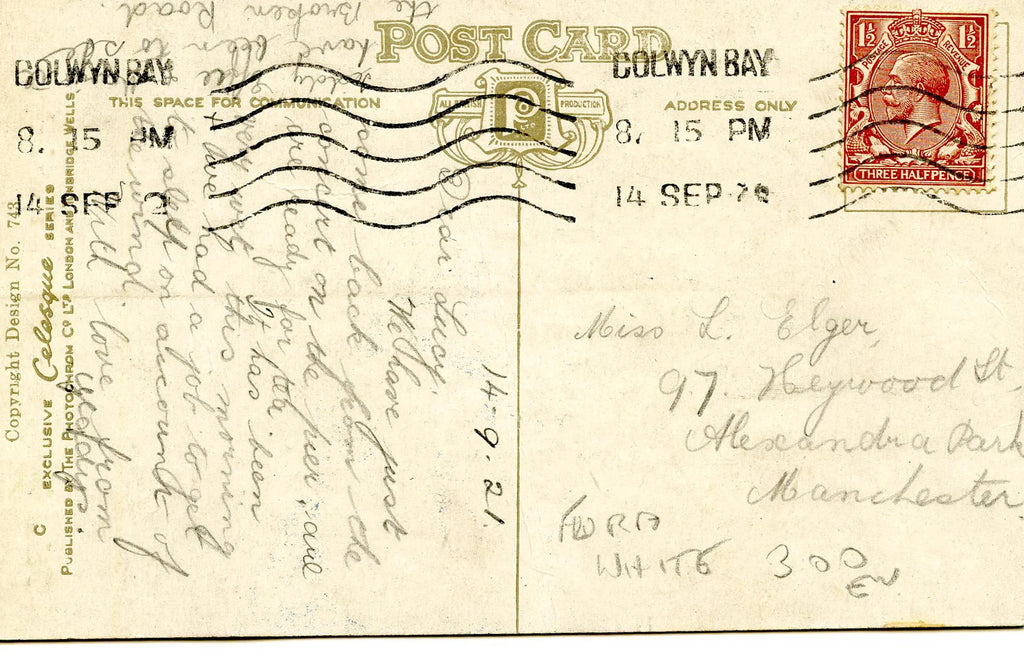 POST CARD
ALL BRITISH PRODUCTION
P
THIS SPACE FOR COMMUNICATION
ADDRESS ONLY
COLWYN BAY
8. 15 PM
14 SEP 2
COLWYN BAY
8. 15 PM
14 SEP
1½ 1½
POSTAGE REVENUE
THREE HALFPENCE
14-9-21.
Dear Lucy,
We have just
come back from the
concert on the pier, are
ready for
It has been
very wet this morning
+ we had a job to get
to sleep on account of
the wind.
love from
have been to see
the Broken Road.
Miss L. Elger,
97. Heywood St.
Alexandra Park
Manchester
WHITE 300
Copyright Design No. 743
C EXCLUSIVE Celesque SERIES
PUBLISHED BY THE PHOTOCHROM CO LTD LONDON AND TUNBRIDGE WELLS